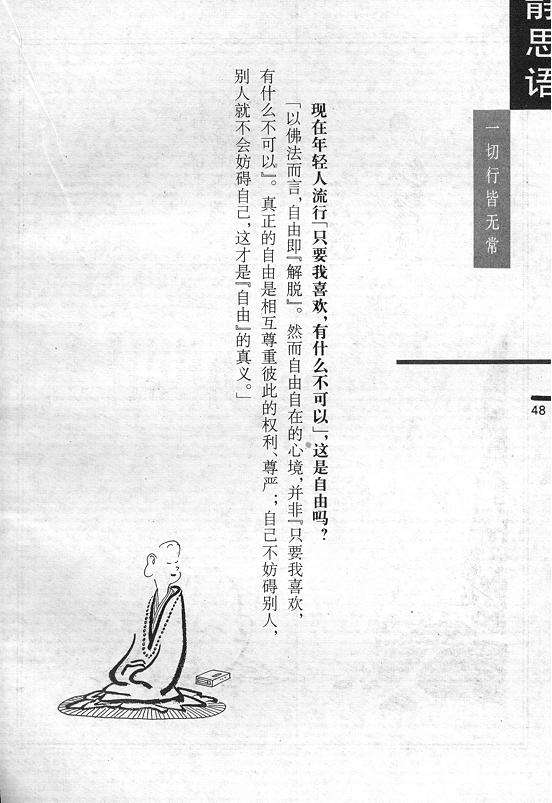 静思语
一切行皆无常
48
现在年轻人流行「只要我喜欢,有什么不可以」,这是自由吗?
「以佛法而言,自由即『解脱』。然而自由自在的心境,并非『只要我喜欢,
有什么不可以』。真正的自由是相互尊重彼此的权利、尊严;自己不妨碍别人,
别人就不会妨碍自己,这才是『自由』的真义。」